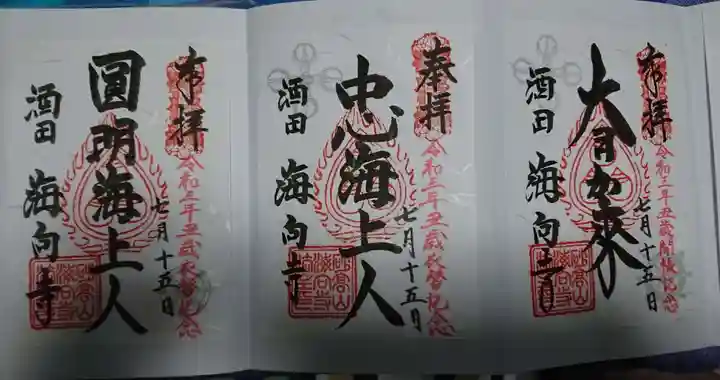 奉拝
令和三年丑歳開帳記念
七月十五日
大日如来
酒田 海向寺
奉拝
令和三年丑歳衣替記念
七月十五日
忠海上人
酒田 海向寺
奉拝
令和三年丑歳衣替記念
七月十五日
圓明海上人
酒田 海向寺